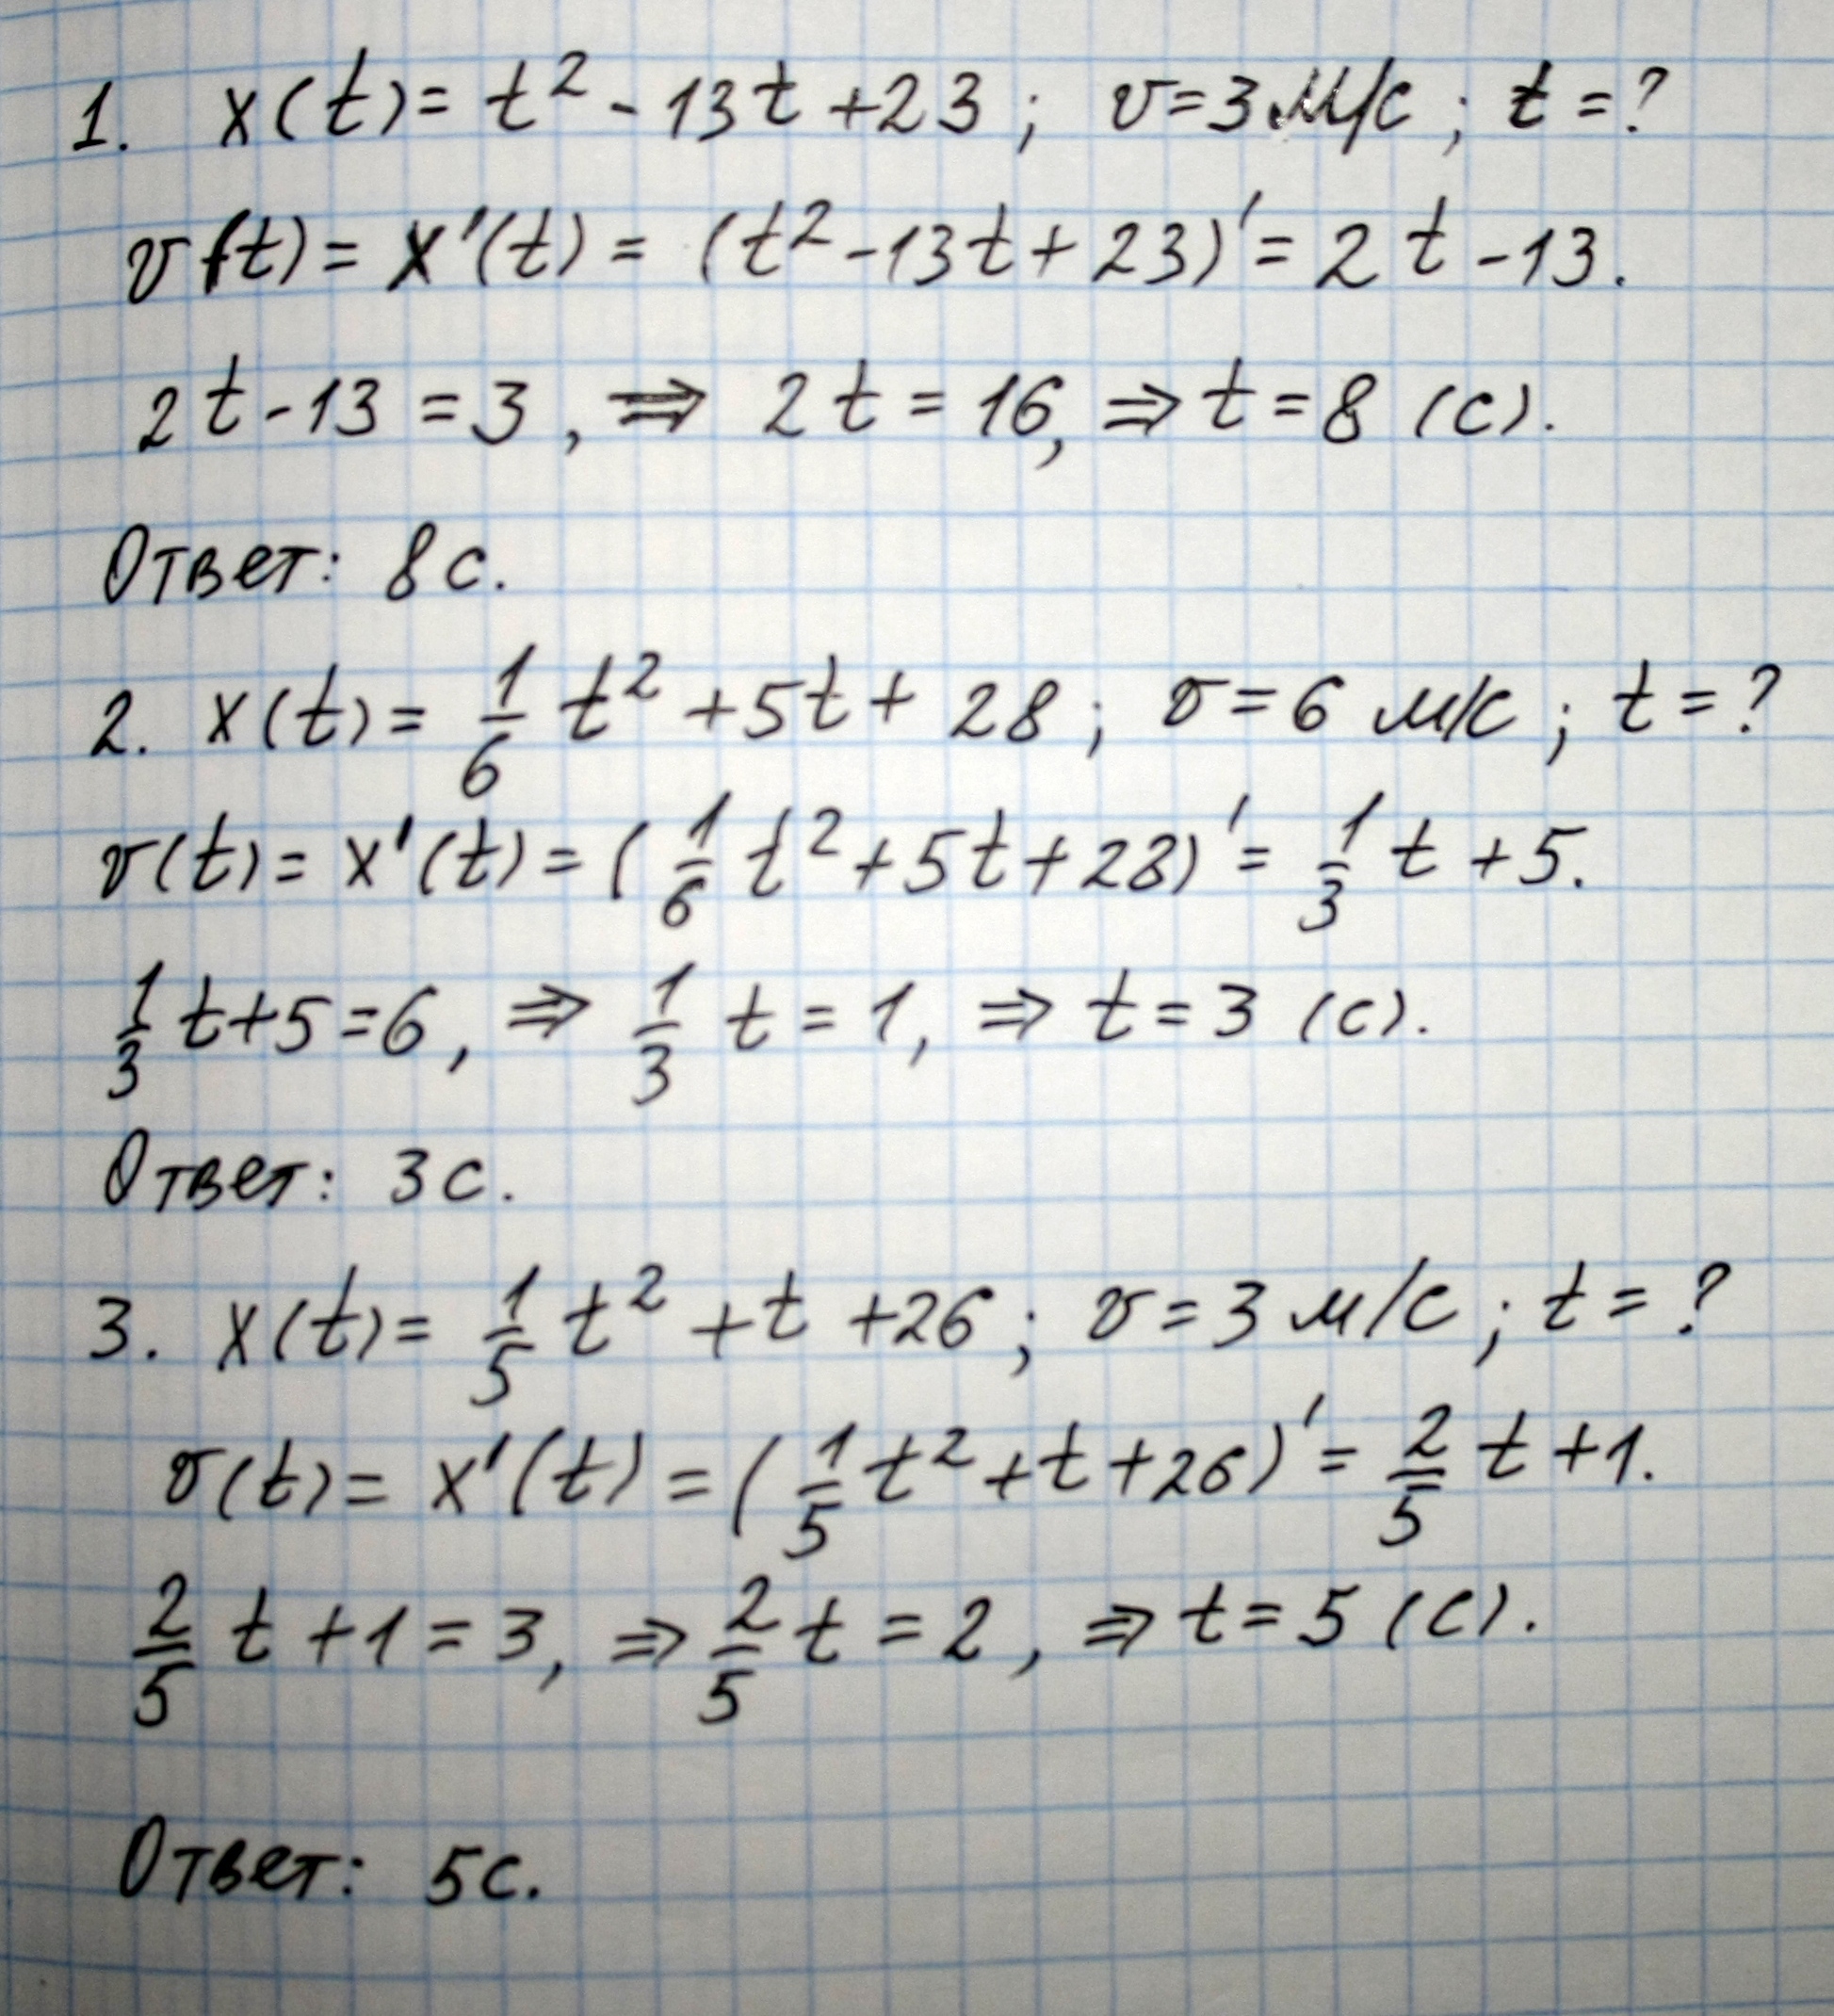 1. x(t) = t² - 13t + 23; v = 3 м/с; t = ?
v(t) = x'(t) = (t² - 13t + 23)' = 2t - 13.
2t - 13 = 3, ⇒ 2t = 16, ⇒ t = 8 (с).
Ответ: 8 с.
2. x(t) = 1/6 t² + 5t + 28; v = 6 м/с; t = ?
v(t) = x'(t) = (1/6 t² + 5t + 28)' = 1/3 t + 5.
1/3 t + 5 = 6, ⇒ 1/3 t = 1, ⇒ t = 3 (с).
Ответ: 3 с.
3. x(t) = 1/5 t² + t + 26; v = 3 м/с; t = ?
v(t) = x'(t) = (1/5 t² + t + 26)' = 2/5 t + 1.
2/5 t + 1 = 3, ⇒ 2/5 t = 2, ⇒ t = 5 (с).
Ответ: 5 с.